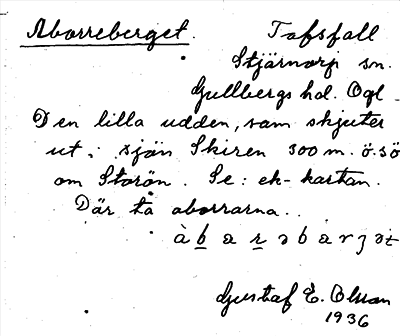 Aborreberget. Tofsfall
Stjärnorp sn.
Gullbergs hd. Ögl.
Den lilla udden, som skjuter
ut i sjön Skiren 300 m. ö.sö
om Storön. Se: ek-kartan.
Där ta aborrarna..
Gustaf E. Olsson
1936